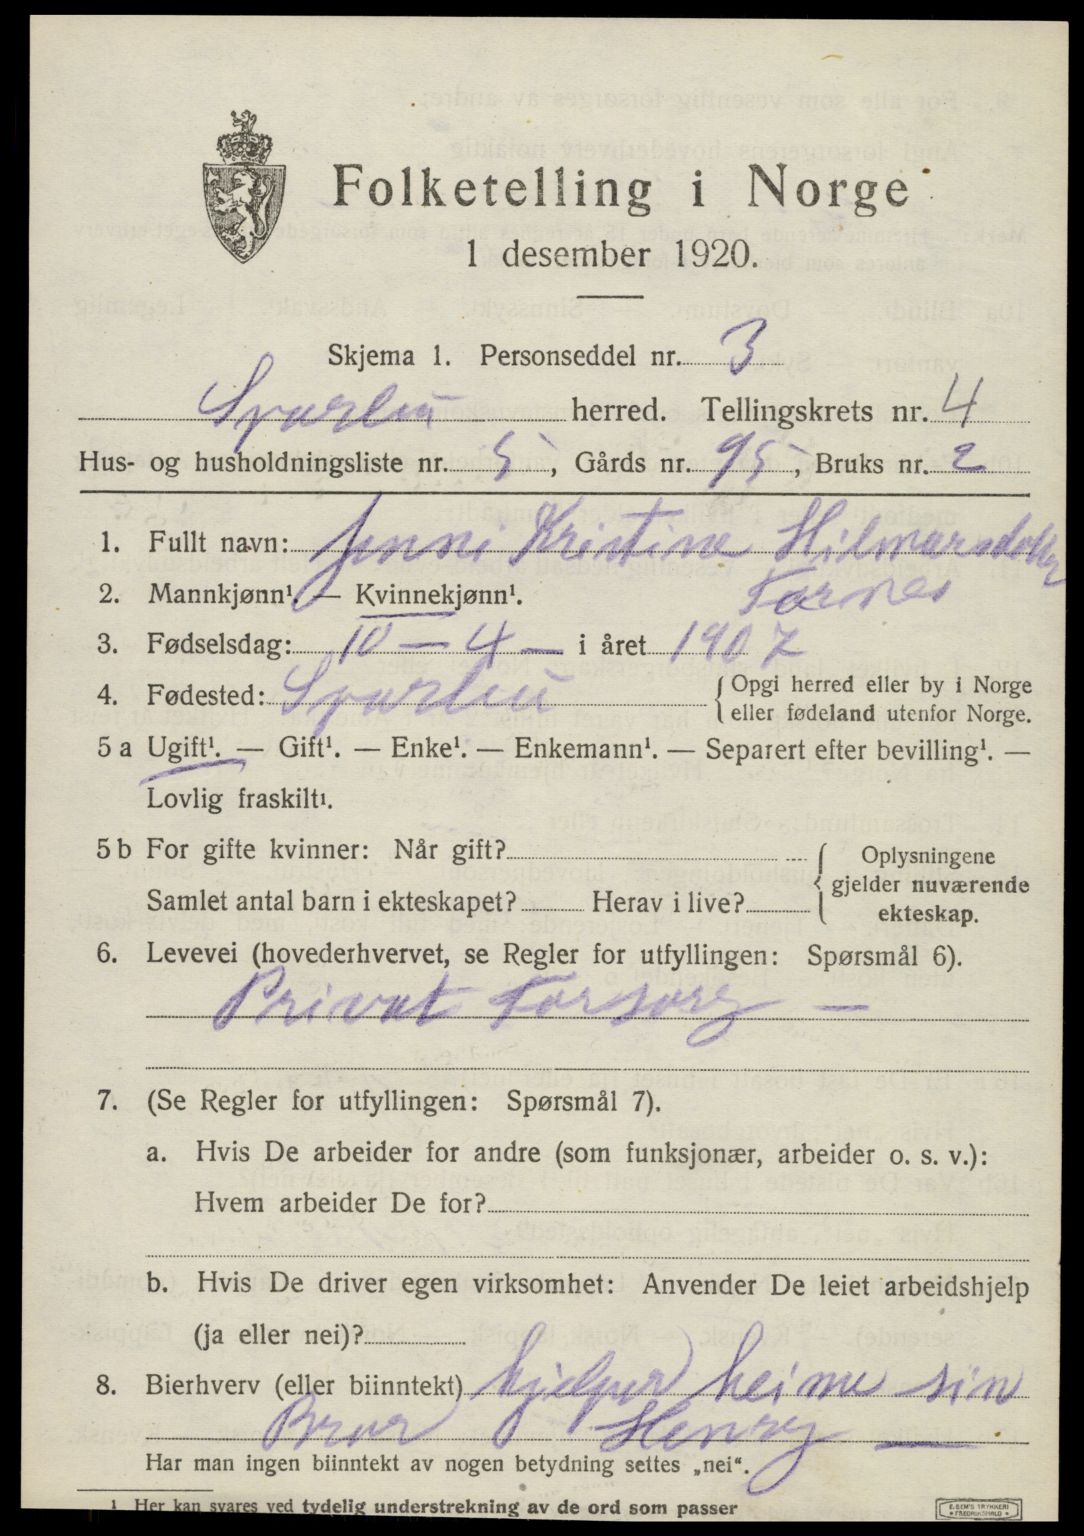 Folketelling i Norge
1 desember 1920.
Skjema 1. Personseddel nr. 3
Sparbu herred. Tellingskrets nr. 4
Hus- og husholdningsliste nr. 5, Gårds nr. 95, Bruks nr. 2
1. Fullt navn: Jenni Kristine Hilmarsdotter
2. Mannkjønn¹. — Kvinnekjønn¹. Tornes
3. Fødselsdag: 10 — 4 — i året 1907
4. Fødested: Sparbu { Opgi herred eller by i Norge
eller fødeland utenfor Norge.
5 a Ugift¹. — Gift¹. — Enke¹. — Enkemann¹. — Separert efter bevilling¹. —
Lovlig fraskilt¹.
5 b For gifte kvinner: Når gift? { Oplysningene
gjelder nuværende
Samlet antal barn i ekteskapet? Herav i live? ekteskap.
6. Levevei (hovederhvervet, se Regler for utfyllingen: Spørsmål 6).
Privat Forsørg —
7. (Se Regler for utfyllingen: Spørsmål 7).
a. Hvis De arbeider for andre (som funksjonær, arbeider o. s. v.):
Hvem arbeider De for?
b. Hvis De driver egen virksomhet: Anvender De leiet arbeidshjelp
(ja eller nei)?
8. Bierhverv (eller biinntekt) hjelper heime sin
Bror Henry —
Har man ingen biinntekt av nogen betydning settes „nei“.
¹ Her kan svares ved tydelig understrekning av de ord som passer
E. SEM'S TRYKKERI
FREDRIKSHALD